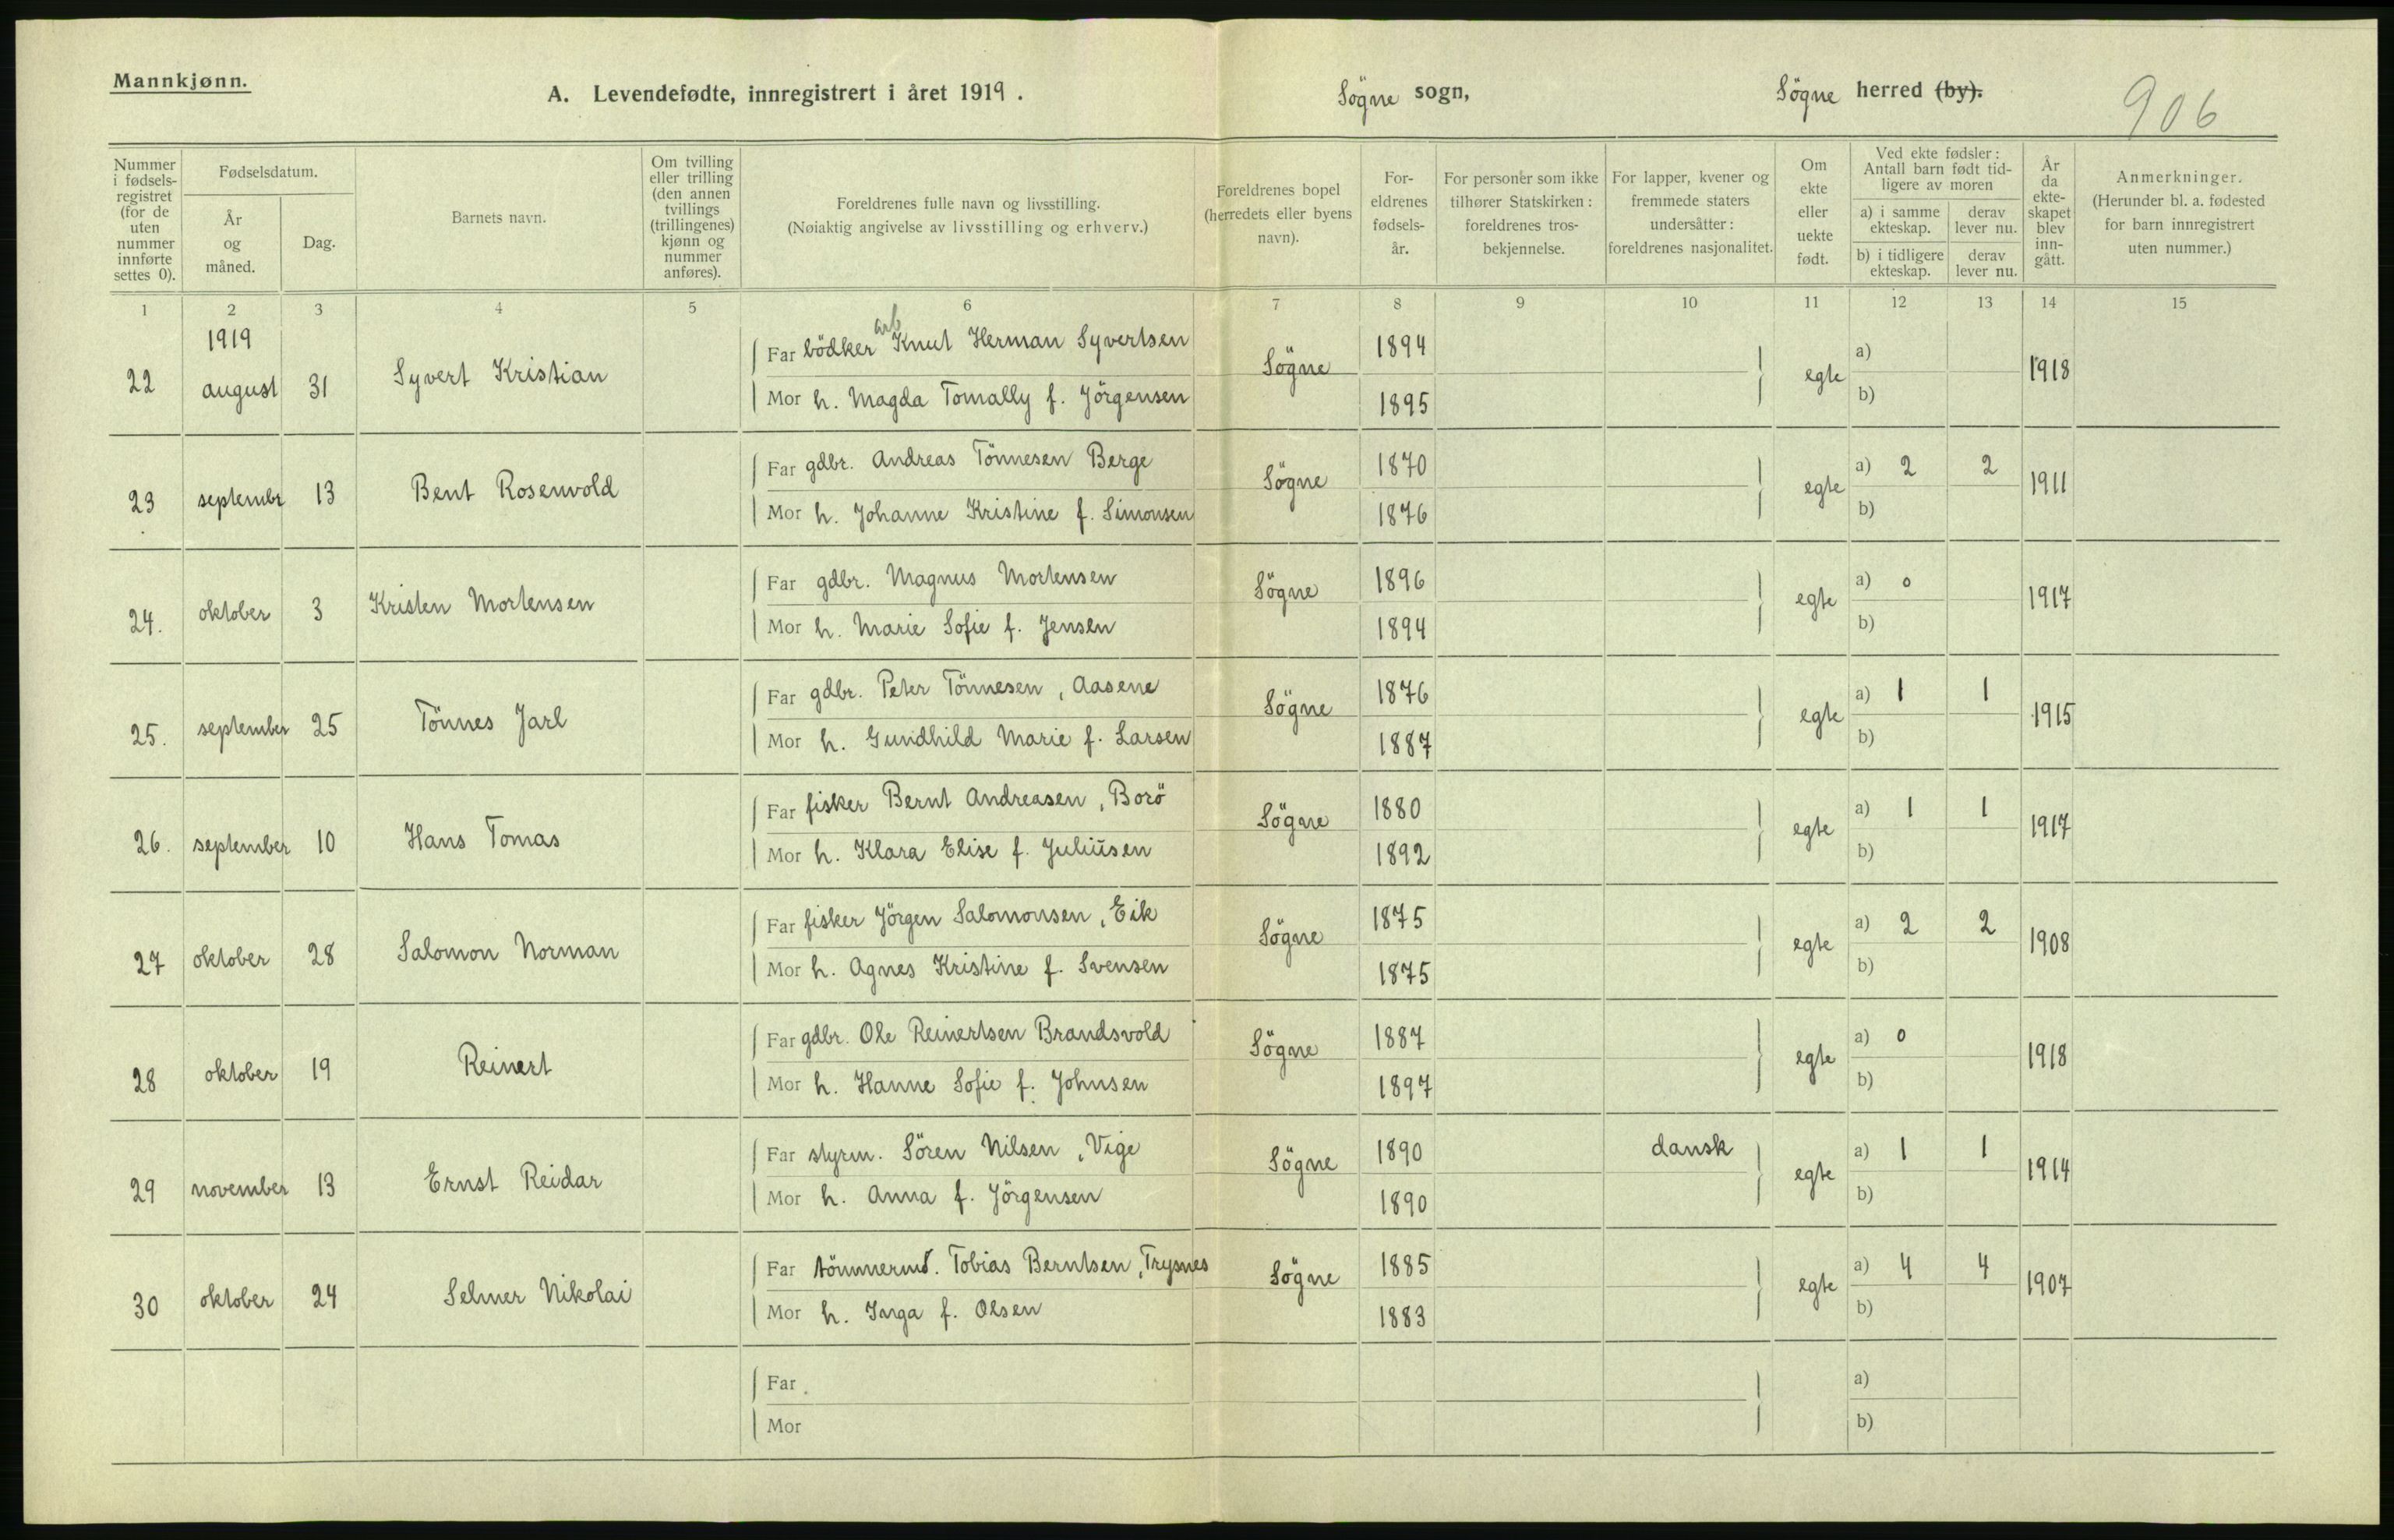 Mannkjønn.
A. Levendefødte, innregistrert i året 1919.
Sögne sogn,
Sögne herred (by).
906
Nummer i fødsels-registret (for de uten nummer innførte settes 0).
Fødselsdatum.
År og måned.
Dag.
Barnets navn.
Om tvilling eller trilling (den annen tvillings (trillingenes) kjønn og nummer anføres).
Foreldrenes fulle navn og livsstilling.
(Nøiaktig angivelse av livsstilling og erhverv.)
Foreldrenes bopel (herredets eller byens navn).
For-eldrenes fødsels-år.
For personer som ikke tilhører Statskirken: foreldrenes tros-bekjennelse.
For lapper, kvener og fremmede staters undersåtter: foreldrenes nasjonalitet.
Om ekte eller uekte født.
Ved ekte fødsler: Antall barn født tid-ligere av moren
a) i samme ekteskap.
derav lever nu.
b) i tidligere ekteskap.
derav lever nu.
År da ekte-skapet blev inn-gått.
Anmerkninger.
(Herunder bl. a. fødested for barn innregistrert uten nummer.)
1 2 3 4 5 6 7 8 9 10 11 12 13 14 15
1919
22 august 31 Syvert Kristian Far bödker arb Knut Herman Syvertsen Sögne 1894 egte a) 1918
Mor h. Magda Tomally f. Jörgensen 1895 b)
23 septembr 13 Bent Rosenvold Far gdbr. Andreas Tönnesen Berge Sögne 1870 egte a) 2 2 1911
Mor h. Johanne Kristine f. Simonsen 1876 b)
24. oktober 3 Kristen Mortensen Far gdbr. Magnus Mortensen Sögne 1896 egte a) 0 1917
Mor h. Marie Sofie f. Jensen 1894 b)
25. september 25 Tönnes Jarl Far gdbr. Peter Tönnesen, Aasene Sögne 1876 egte a) 1 1 1915
Mor h. Gundhild Marie f. Larsen 1887 b)
26. september 10 Hans Tomas Far fisker Bernt Andreasen, Borö Sögne 1880 egte a) 1 1 1917
Mor h. Klara Elise f. Juliusen 1892 b)
27 oktober 28 Salomon Norman Far fisker Jörgen Salomonsen, Eik Sögne 1875 egte a) 2 2 1908
Mor h. Agnes Kristine f. Svensen 1875 b)
28 oktober 19 Reinert Far gdbr. Ole Reinertsen Brandsvold Sögne 1887 egte a) 0 1918
Mor h. Hanne Sofie f. Johnsen 1897 b)
29 november 13 Ernst Reidar Far styrm. Sören Nilsen, Vige Sögne 1890 dansk egte a) 1 1 1914
Mor h. Anna f. Jörgensen 1890 b)
30 oktober 24 Selmer Nikolai Far tömmerm. Tobias Berntsen, Trysnes Sögne 1885 egte a) 4 4 1907
Mor h. Inga f. Olsen 1883 b)
Far a)
Mor b)